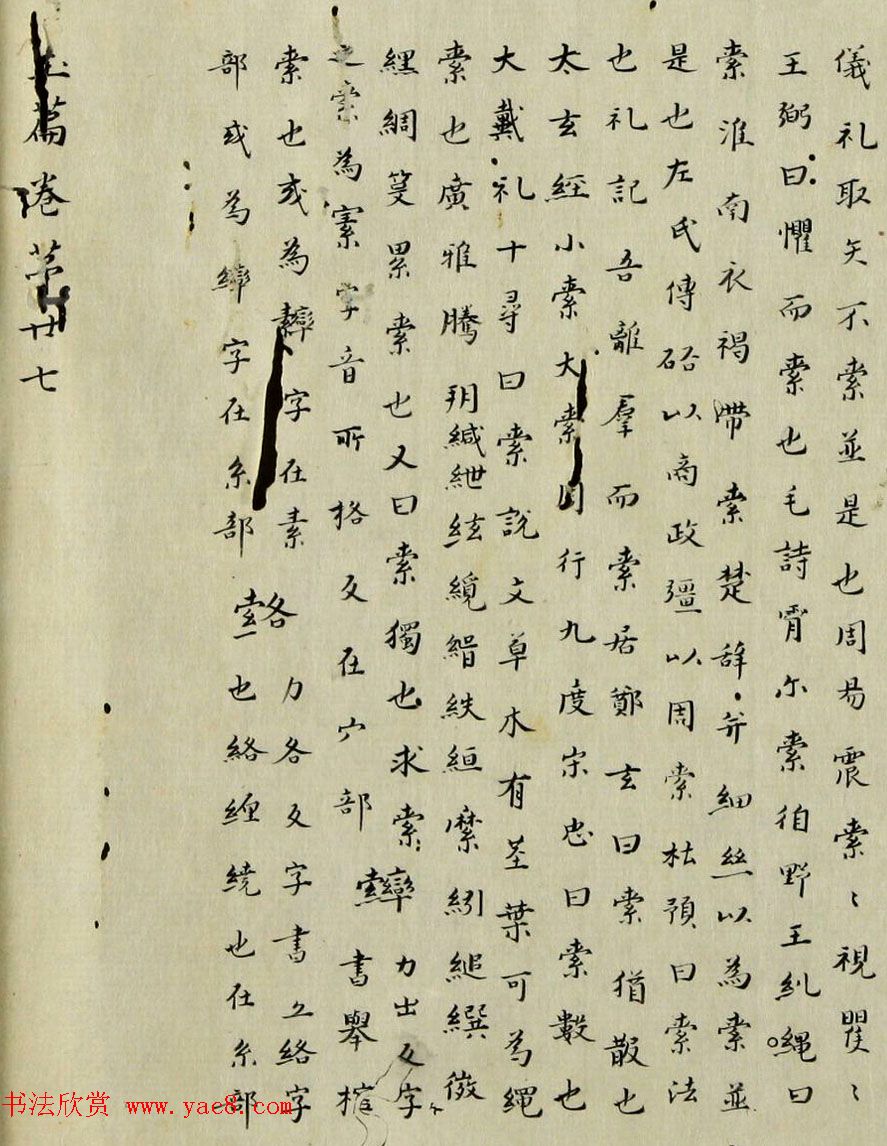 儀礼取矢不索並是也周昜震索〻視瞿〻
王弼曰懼而索也毛詩宵尓索綯野王糺縄曰
索淮南衣褐帶索楚辞并細絲以為索並
是也左氏傳啓以商政彊以周索杜預曰索法
也礼記吾離羣而索居鄭玄曰索猶散也
太玄經小索大索周行九度宋忠曰索數也
大戴礼十尋曰索說文草木有莖葉可為縄
索也廣雅縢䋫緘紲絃䋿緍紩縆縻紖縋縸徽
纆綢筊累索也又曰索獨也求索
之索為㩈字音所格反在宀部 書舉榷
索也或為字在素 力出反字
部或為繂字在糸部 力各反字書亦絡字
也絡纒繞也在糸部
玉篇卷第廿七
书法欣赏 www.yac8.com